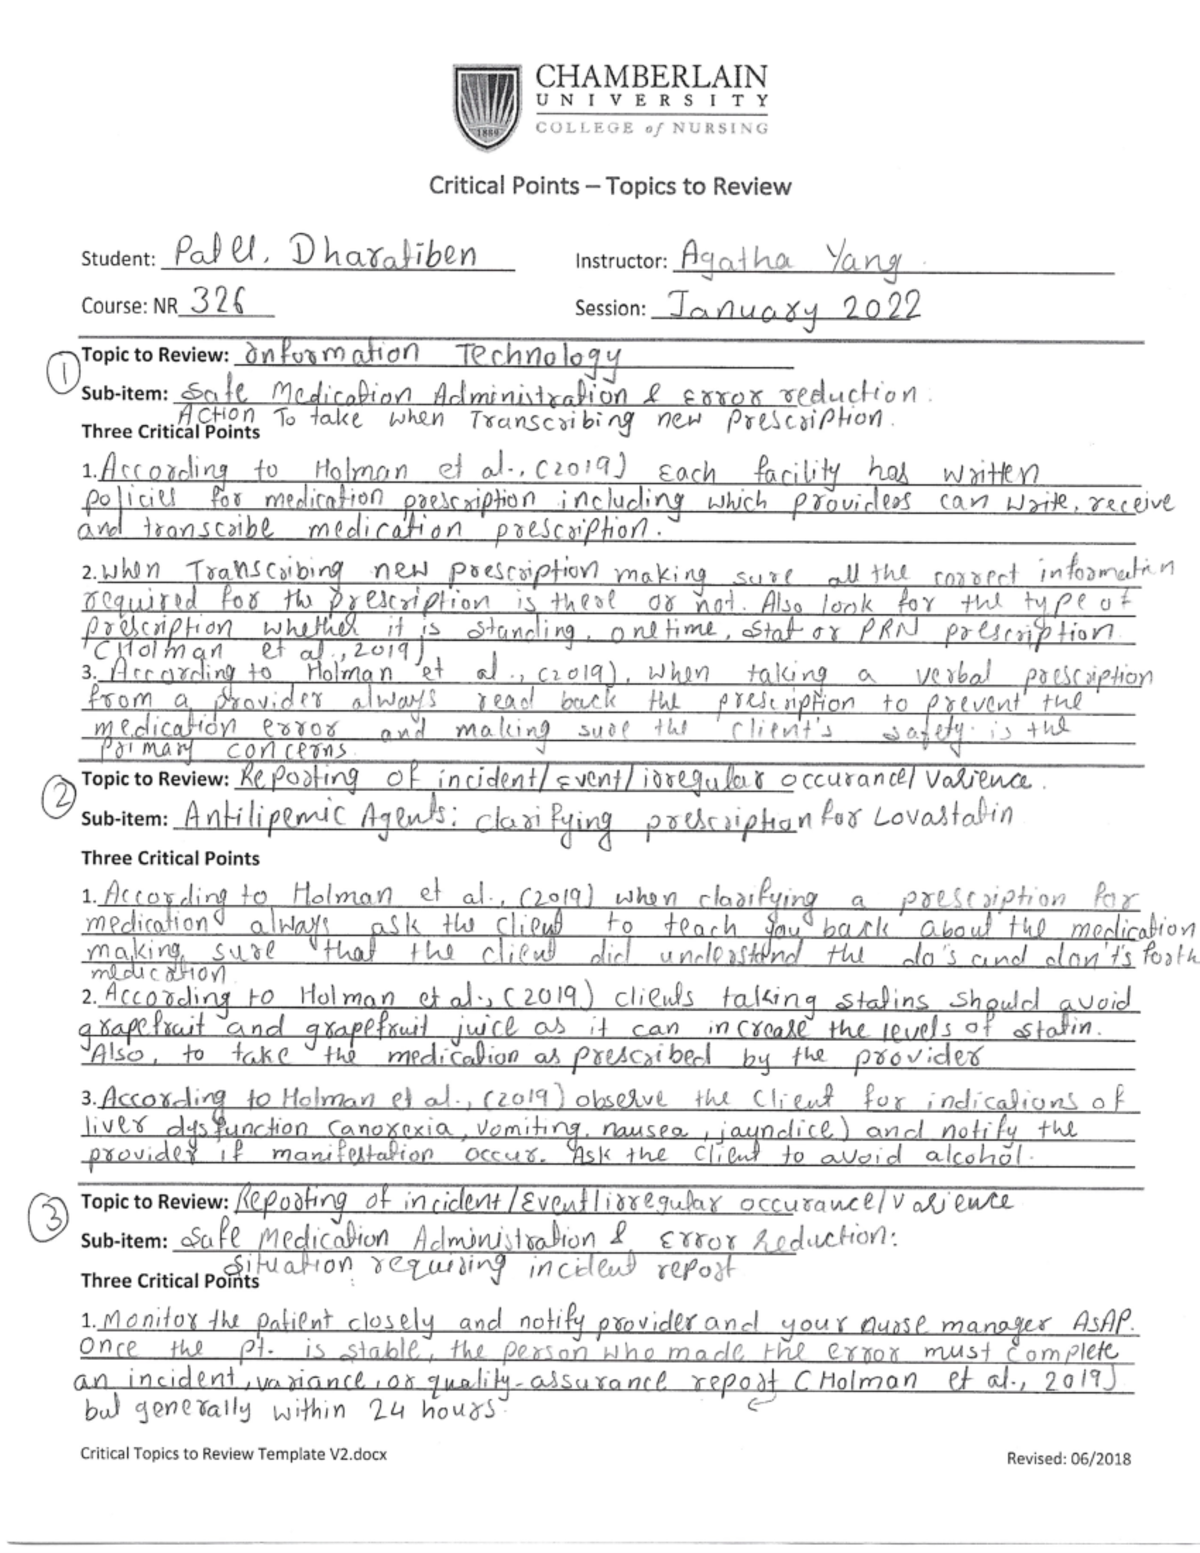 CHAMBERLAIN
UNIVERSITY
COLLEGE of NURSING
1889
Critical Points – Topics to Review
Student: Patel, Dharatiben Instructor: Agatha Yang
Course: NR 326 Session: January 2022
1 Topic to Review: Information Technology
Sub-item: Safe Medication Administration & Error reduction:
ACTION To take when Transcribing new Prescription.
Three Critical Points
1. According to Holman et al., (2019) Each facility has written
policies for medication prescription including which providers can write, receive
and transcribe medication prescription.
2. When Transcribing new prescription making sure all the correct information
required for the prescription is there or not. Also look for the type of
prescription whether it is standing, onetime, stat or PRN prescription
(Holman et al., 2019)
3. According to Holman et al., (2019), when taking a verbal prescription
from a provider always read back the prescription to prevent the
medication error and making sure the client's safety is the
primary concerns
2 Topic to Review: Reporting of incident/Event/irregular occurance/Varience.
Sub-item: Antilipemic Agents: Clarifying prescription for Lovastatin
Three Critical Points
1. According to Holman et al., (2019) when clarifying a prescription for
medication always ask the client to teach you back about the medication
making sure that the client did understand the do's and don't's forth
medication
2. According to Holman et al., (2019) clients taking statins should avoid
grapefruit and grapefruit juice as it can increase the levels of statin.
Also, to take the medication as prescribed by the provider
3. According to Holman et al., (2019) observe the client for indications of
liver dysfunction (anorexia, vomiting, nausea, jayndice) and notify the
provider if manifestation occur. Ask the client to avoid alcohol.
3 Topic to Review: Reporting of incident/Event/irregular occurance/Varience
Sub-item: Safe Medication Administration & Error Reduction:
Situation requiring incident report
Three Critical Points
1. Monitor the patient closely and notify provider and your nurse manager ASAP.
Once the pt. is stable, the person who made the error must complete
an incident, variance, or quality-assurance report (Holman et al., 2019)
but generally within 24 hours.
Critical Topics to Review Template V2.docx Revised: 06/2018